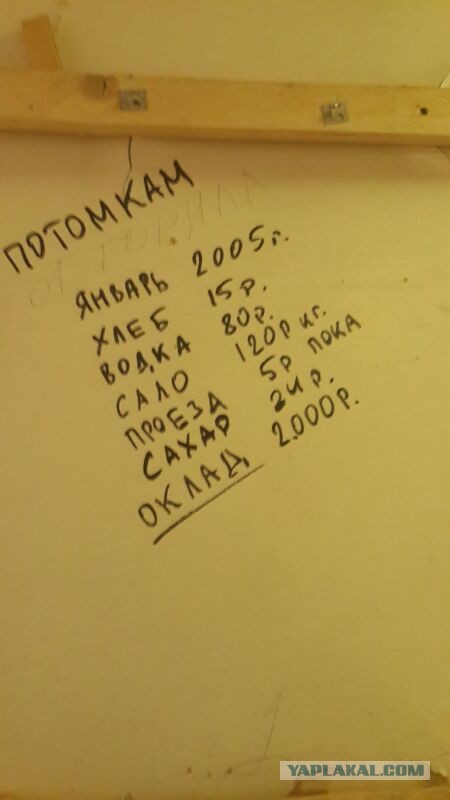 ПОТОМКАМ
ЯНВАРЬ 2005г.
ХЛЕБ 15р.
ВОДКА 80р.
САЛО 120р кг.
ПРОЕЗД 5р ПОКА
САХАР 24р.
ОКЛАД 2.000р.
YAPLAKAL.COM